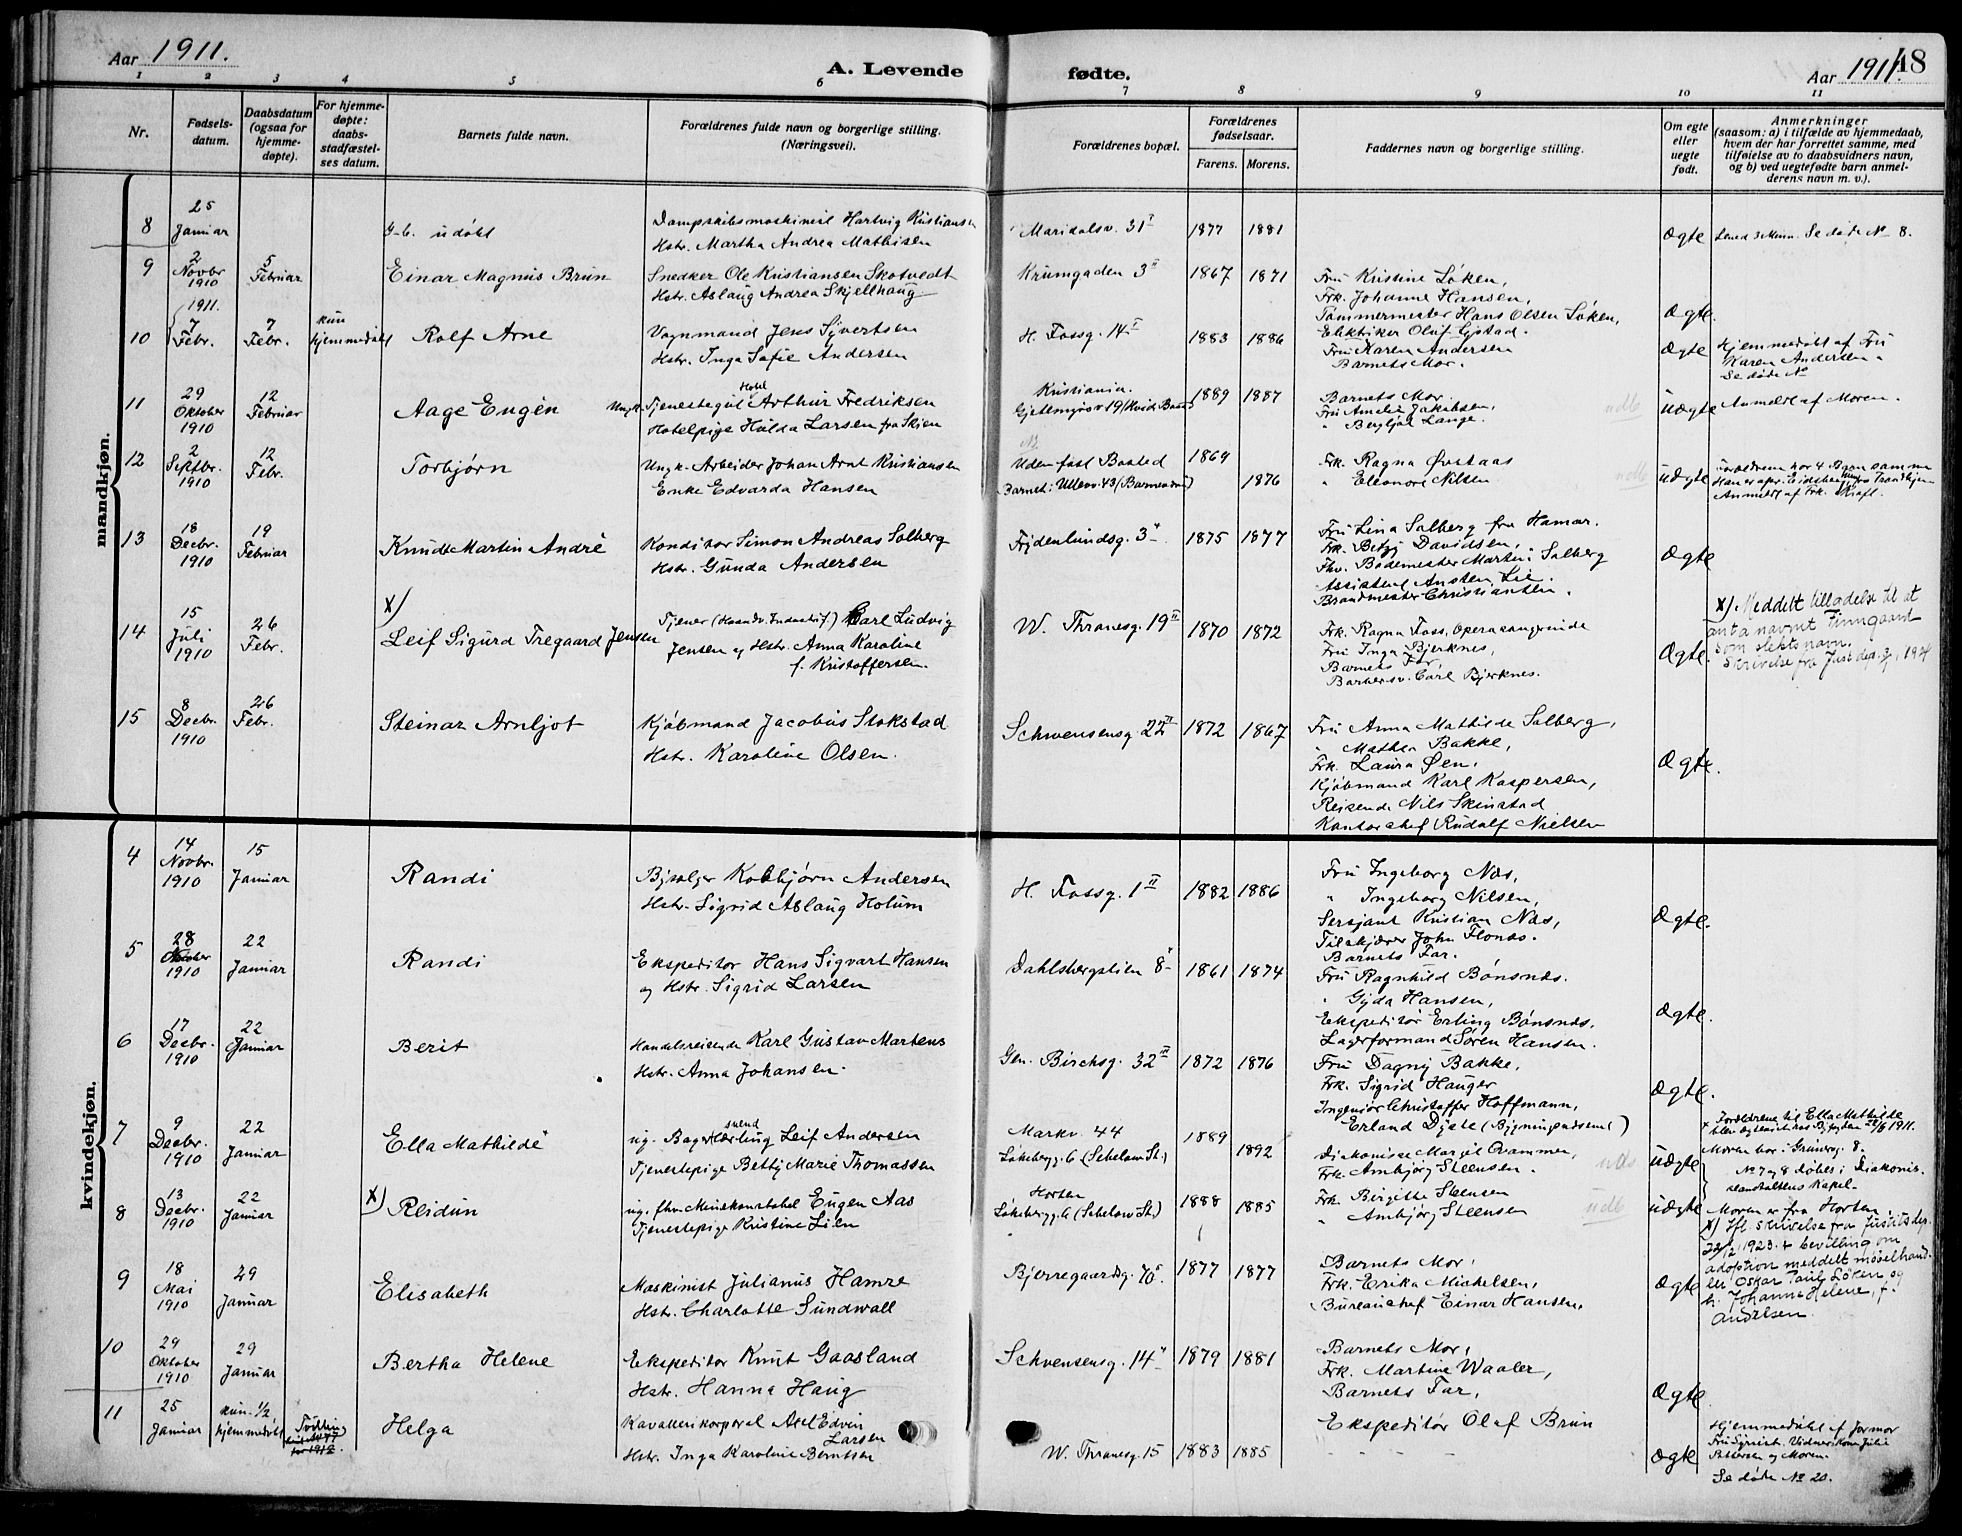 Aar 1911.
A. Levende
fødte.
Aar 1911.
48
1 2 3 4 5 6 7 8 9 10 11
Nr.
Fødsels-
datum.
Daabsdatum
(ogsaa for
hjemme-
døpte).
For hjemme-
døpte:
daabs-
stadfæstel-
ses datum.
Barnets fulde navn.
Forældrenes fulde navn og borgerlige stilling.
(Næringsvei).
Forældrenes bopæl.
Forældrenes
fødselsaar.
Farens. Morens.
Faddernes navn og borgerlige stilling.
Om egte
eller
uegte
født.
Anmerkninger
(saasom: a) i tilfælde av hjemmedaab,
hvem der har forrettet samme, med
tilføielse av to daabsvidners navn,
og b) ved uegtefødte barn anmel-
derens navn m. v.).
mandkjøn.
8
25
Januar
G-b. udøbt
Dampskibsmaskinist Hartvig Kristiansen
Hstr. Martha Andrea Mathisen
Maridalsv. 31 I
1877 1881
Ægte
Leved 3 Minn. Se døde No 8.
9
2
Novbr
1910
5
Februar
Einar Magnus Brun
Snedker Ole Kristiansen Skotvedt
Hstr. Aslaug Andrea Skjellhaug
Krumgaden 3 II
1867 1871
Fru Kristine Løken,
Frk. Johanne Hansen,
Tømmermester Hans Olsen Løken,
Elektriker Oluf Gjstad.
Ægte.
10
1911.
7
Febr.
7
Febr.
kun
hjemmedøbt
Rolf Arne
Vognmand Jens Sjvertsen
Hstr. Inga Sofie Andersen
H. Fossg. 14 I
1883 1886
Fru Karen Andersen
Barnets Mor.
Ægte
Hjemmedøbt af Fru
Karen Andersen.
Se døde No
11
29
Oktober
1910
12
Februar
Aage Eugén
Hotel
Ungk. Tjenestegut Arthur Fredriksen
Hotelpige Hulda Larsen fra Skien
Kristiania.
1889 1887
Barnets Mor.
Fru Amelie Jakobsen,
" Bergljot Lange.
udb
uægte
Anmeldt af Moren.
12
2
Septbr.
1910
12
Febr.
Torbjørn
Ungk. Arbeider Johan Arnt Kristiansen
Enke Edvarda Hansen
Uden fast Bosted
1869
1876
Frk. Ragna Øvstaas
" Eleonore Nilsen
udb
uægte
Forældrene har 4 Børn samme
Anmeldt af Frk. Kraft.
13
18
Decbr.
1910
19
Februar
Knudt Martin André
Konditor Simon Andreas Solberg
Hstr. Gunda Andersen
Frydenlundsg. 3 II
1875 1877
Fru Lina Solberg fra Hamar.
Frk. Betzy Davidsen,
Fhv. Bademester Martin Solberg
Assistent Ansten Lie.
Brandmester Christiansen.
Ægte
14
15
Juli
1910
26
Febr.
x)
Leif Sigurd Tregaard Jensen
Tjener (Haandv. Industrif.) Carl Ludvig
Jensen og Hstr. Anna Karoline
f. Kristoffersen.
W. Thranesg. 19 II
1870 1872
Frk. Ragna Foss, Operasangerinde
Fru Inga Bjerknes,
Barnets Far,
Barbersv. Carl Bjerknes.
Ægte.
x) Meddelt tilladelse til at
anta navnet Finngaard
som slektsnavn.
Skrivelse fra Just.dep.
15
8
Decbr.
1910
26
Febr.
Steinar Arnljot
Kjøbmand Jacobus Stokstad
Hstr. Karoline Olsen.
Schwensensg. 22 II
1872 1867
Fru Anna Mathilde Solberg,
" Mathea Bakke,
Frk. Laura Øen,
Kjøbmand Karl Kaspersen,
Reisende Nils Skinstad
Kontorchef Rudolf Nielsen
Ægte.
kvindekjøn.
4
14
Novbr.
1910
15
Januar
Randi
Bysælger Kolbjørn Andersen
Hstr. Sigrid Aslaug Holum
H. Fossg. 1 II
1882 1886
Fru Ingeborg Næs,
" Ingeborg Nilsen,
Sersjant Kristian Næs,
Tilskjærer John Flonæs.
Barnets Far.
Ægte.
5
28
Oktober
1910
22
Januar
Randi
Ekspeditør Hans Sigvart Hansen
og Hstr. Sigrid Larsen
Dahlsbergstien 8
1861 1874
Fru Ragnhild Bønsnæs.
" Gyda Hansen,
Ekspeditør Erling Bønsnæs.
Lagerformand Søren Hansen.
Ægte.
6
17
Decbr.
1910
22
Januar
Berit
Handelsreisende Karl Gustav Martens
Hstr. Anna Johansen.
Gen. Birchsg. 32 III
1872 1876
Fru Dagny Bakke,
Frk. Sigrid Hauger
Ingeniør Christoffer Hoffmann,
Ægte.
7
9
Decbr.
1910
22
Januar
Ella Mathilde
svend
ug. Bagerlærling Leif Andersen
Tjenestepige Betty Marie Thomassen
Markv. 44
Løkebergg. 6 (Sebelow St.)
1889
1892
Diakonisse Margit Ovammen,
Frk. Ambjørg Steensen.
udb
uægte
+ Forældrene til Ella Mathilde
Moren bor i Grünerg. 8.
No 7 og 8 døbes i Diakonis-
seanstaltens Kapel.
8
13
Decbr.
1910
22
Januar
x)
Reidun
ug. fhv. Minekonstabel Eugen Aas
Tjenestepige Kristine Lien
Horten
Løkebergg. 6 (Sebelow St.)
1888 1885
Frk. Birgitte Steensen
" Ambjørg Steensen
udb
uægte
Moren er fra Horten.
x) Ifl. skrivelse fra Justitsdep.
1923. + bevilling om
adoption meddelt møbelhand-
ler Oskar Pauly Løken, og
h. Johanne Helene, f.
Andresen.
9
18
Mai
1910
29
Januar
Elisabeth
Maskinist Julianus Hamre
Hstr. Charlotte Sundwall
Bjerregaardsg. 70
1877 1877
Barnets Mor,
Frk. Erika Michelsen,
Bureauchef Einar Hansen,
Ægte
10
29
Oktober
1910
29
Januar
Bertha Helene
Ekspeditør Knut Gaasland
Hstr. Hanna Haug
Schvensensg. 14
1879 1881
Barnets Mor,
Frk. Martine Waaler,
Barnets Far,
Ekspeditør Olaf Brun
Ægte.
11
25
Januar
kun 1/2
hjemmedøbt
Helga
Kavallerikorporal Axel Edvin
Larsen
Hstr. Inga Karoline Berntsen
W. Thranesg. 15
1883 1885
Ægte
Hjemmedøbt af Jormor
Pettersen og Moren.
Se døde No 20.